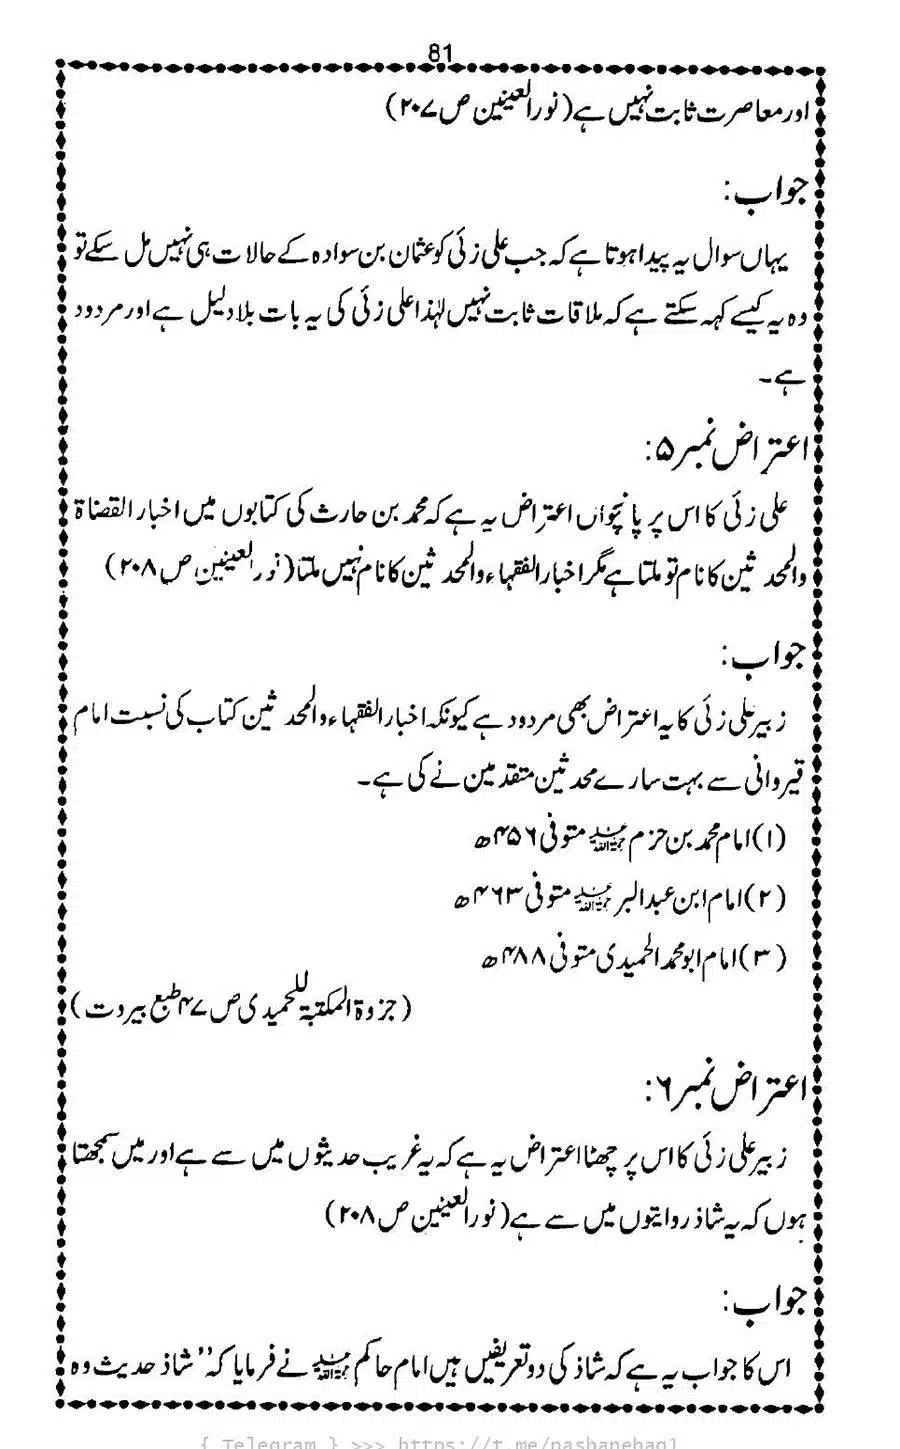 81
اور معاصرت ثابت نہیں ہے (نور العینین ص ۲۰۷)
جواب:
یہاں سوال یہ پیدا ہوتا ہے کہ جب علی زئی کو عثمان بن سوادہ کے حالات ہی نہیں مل سکے تو
وہ یہ کیسے کہہ سکتے ہے کہ ملاقات ثابت نہیں لہٰذا علی زئی کی یہ بات بلا دلیل ہے اور مردود
ہے۔
اعتراض نمبر ۵:
علی زئی کا اس پر پانچواں اعتراض یہ ہے کہ محمد بن حارث کی کتابوں میں اخبار القضاۃ
والمحدثین کا نام تو ملتا ہے مگر اخبار الفقہاء والمحدثین کا نام نہیں ملتا (نور العینین ص ۲۰۸)
جواب:
زبیر علی زئی کا یہ اعتراض بھی مردود ہے کیونکہ اخبار الفقہاء والمحدثین کتاب کی نسبت امام
قیروانی سے بہت سارے محدثین متقدمین نے کی ہے۔
(۱) امام محمد بن حزم رحمۃ اللہ علیہ متوفی ۴۵۶ھ
(۲) امام ابن عبدالبر رحمۃ اللہ علیہ متوفی ۴۶۳ھ
(۳) امام ابو محمد الحمیدی متوفی ۴۸۸ھ
(جزوۃ المکتبۃ للحمیدی ص ۴۷ طبع بیروت)
اعتراض نمبر ۶:
زبیر علی زئی کا اس پر چھٹا اعتراض یہ ہے کہ یہ غریب حدیثوں میں سے ہے اور میں سمجھتا
ہوں کہ یہ شاذ روایتوں میں سے ہے (نور العینین ص ۲۰۸)
جواب:
اس کا جواب یہ ہے کہ شاذ کی دو تعریفیں ہیں امام حاکم رحمۃ اللہ علیہ نے فرمایا کہ ’’شاذ حدیث وہ
{ Telegram } >>> https://t.me/pasbanehaq1